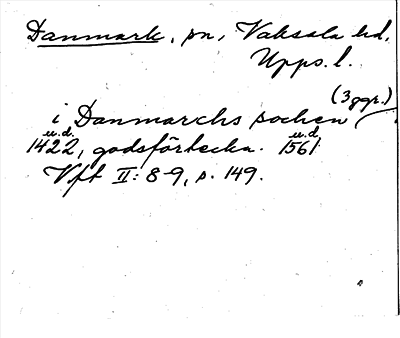 Danmark, sn, Vaksala hd,
Upps. l.
(3 ggr.)
i Danmarchs sochen
u.d. u.d
1422, godsförteckn. 1561
Vft II: 8-9, s. 149.